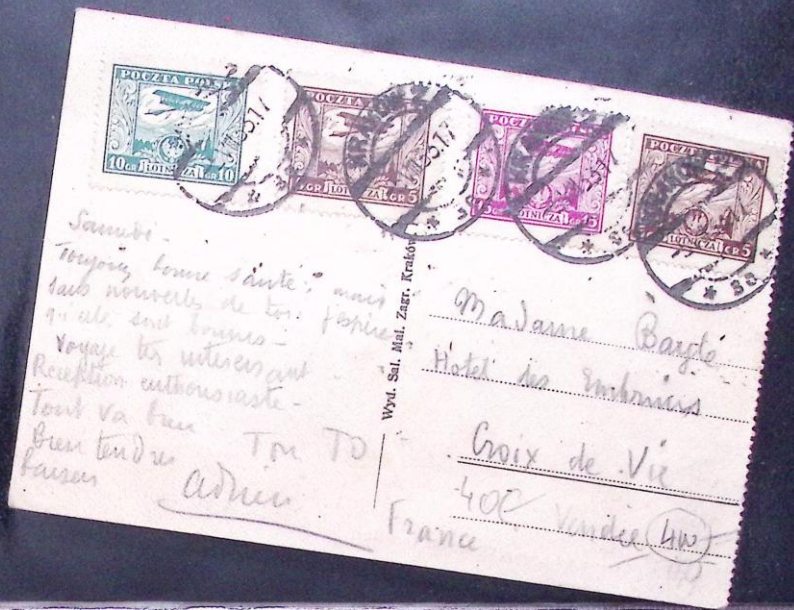 POCZTA POLSKA
10 GR LOTNICZA GR 10
POCZTA POLSKA
GR LOTNICZA GR 5
POCZTA POLSKA
15 GR LOTNICZA GR 15
POCZTA POLSKA
LOTNICZA GR 5
KRAKÓW 2
Samedi -
Toujours bonne santé, mais
sans nouvelles de toi. J'espère
qu'elles sont bonnes -
Voyage très intéressant
Réception enthousiaste -
Tout va bien
Bien tendres
baisers
Ton TO
Adrien
Wyd. Sal. Mal. Zagr. Kraków
Madame
Hotel des Embruns
Croix de Vie
Vendée
France
40C
400